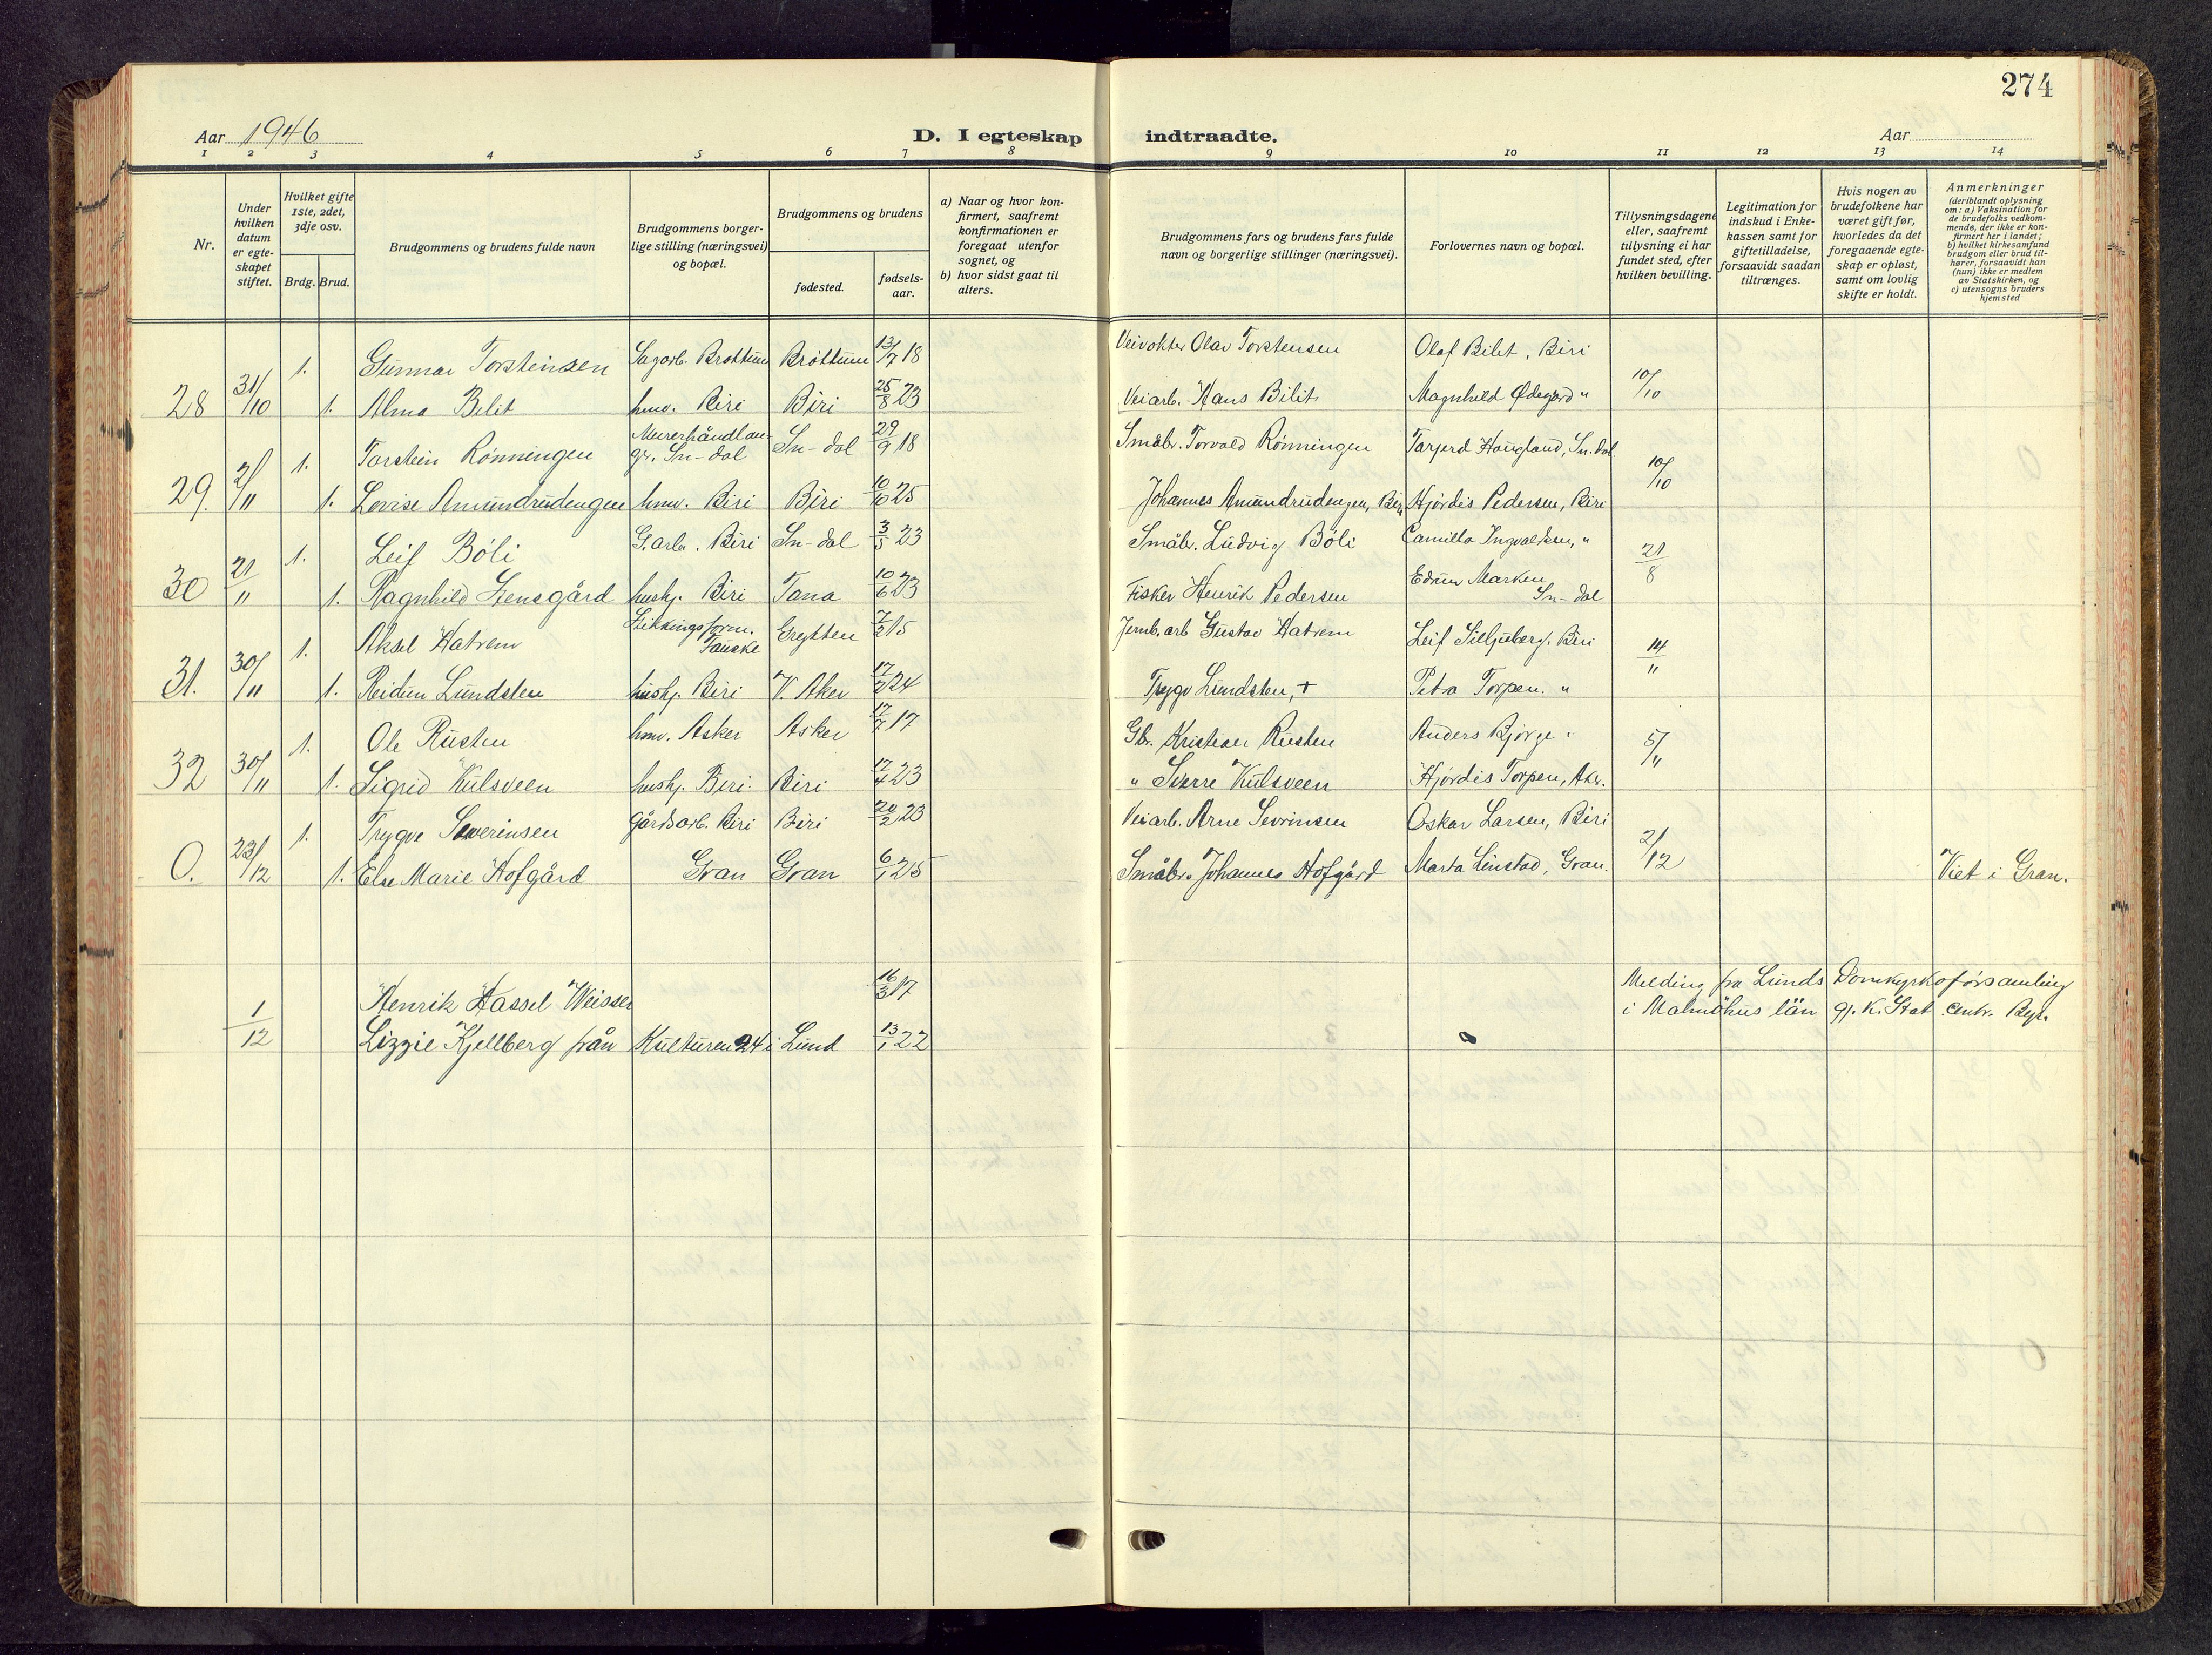 274
Aar 1946 D. I egteskap indtraadte. Aar
1 2 3 4 5 6 7 8 9 10 11 12 13 14
Nr.
Under hvilken datum er egteskapet stiftet.
Hvilket gifte 1ste, 2det, 3dje osv.
Brdg. Brud.
Brudgommens og brudens fulde navn
Brudgommens borgerlige stilling (næringsvei) og bopæl.
Brudgommens og brudens
fødested.
fødselsaar.
a) Naar og hvor konfirmert, saafremt konfirmationen er foregaat utenfor sognet, og
b) hvor sidst gaat til alters.
Brudgommens fars og brudens fars fulde navn og borgerlige stillinger (næringsvei).
Forlovernes navn og bopæl.
Tillysningsdagene eller, saafremt tillysning ei har fundet sted, efter hvilken bevilling.
Legitimation for indskud i Enkekassen samt for giftetilladelse, forsaavidt saadan tiltrænges.
Hvis nogen av brudefolkene har været gift før, hvorledes da det foregaaende egteskap er opløst, samt om lovlig skifte er holdt.
Anmerkninger (deriblandt oplysning om: a) Vaksination for de brudefolks vedkommende, der ikke er konfirmert her i landet; b) hvilket kirkesamfund brudgom eller brud tilhører, forsaavidt han (hun) ikke er medlem av Statskirken, og c) utensogns bruders hjemsted
1. Gunnar Torsteinsen Sagarb. Brøttum Brøttum 13/7 18 Veivokter Olav Torstensen Olaf Bilit, Biri
28 31/10 1. Alma Bilit hmv. Biri Biri 25/8 23 Veiarb. Hans Bilit Magnhild Ødegård " 10/10
1. Torstein Rønningen Murerhåndlanger. Sn-dal Sn-dal 29/9 18 Småbr. Torvald Rønningen Tarjerd Haugland, Sn.dal
29. 2/11 1. Lovise Amundrudengen hmv. Biri Biri 10/10 25 Johannes Amundrudengen, Biri Hjørdis Pedersen, Biri 10/10
1. Leif Böli G.arb. Biri Sn-dal 3/5 23 Småbr. Ludvig Böli Camilla Ingvaldsen, "
30 21/11 1. Ragnhild Stensgård hushj. Biri Tana 10/6 23 Fisker Henrik Pedersen Edvin Marken Sn-dal 21/8
1. Aksel Hatrem Stikningsform. Fauske Grytten 7/2 15 Jernb.arb Gustav Hatrem Leif Silljuberg. Biri
31. 30/11 1. Reidun Lundsten hushj. Biri V. Aker 17/2 24 Trygv Lundsten, + Petra Torpen. " 14/11
1. Ole Rusten hmv. Asker Asker 17/7 17 Gbr. Kristian Rusten Anders Bjørge "
32 30/11 1. Sigrid Kulsveen hushj. Biri. Biri 17/4 23 " Sverre Kulsveen Hjørdis Torpen, Aker. 5/11
1. Trygve Severinsen Gårdsarb. Biri Biri 20/2 23 Veiarb. Arne Sevrinsen Oskar Larsen, Biri
0. 23/12 1. Else Marie Hofgård Gran Gran 6/1 25 Småbr. Johannes Hofgård Marta Linstad, Gran. 2/12 Viet i Gran.
Henrik Hassel Weisser 16/3 17 Melding fra Lunds Domkyrkoförsamling
1/12 i Malmöhus län gj. K. Stat. Centr. Byr.
Lizzie Kjellberg från Kulturen 24 i Lund 13/1 22